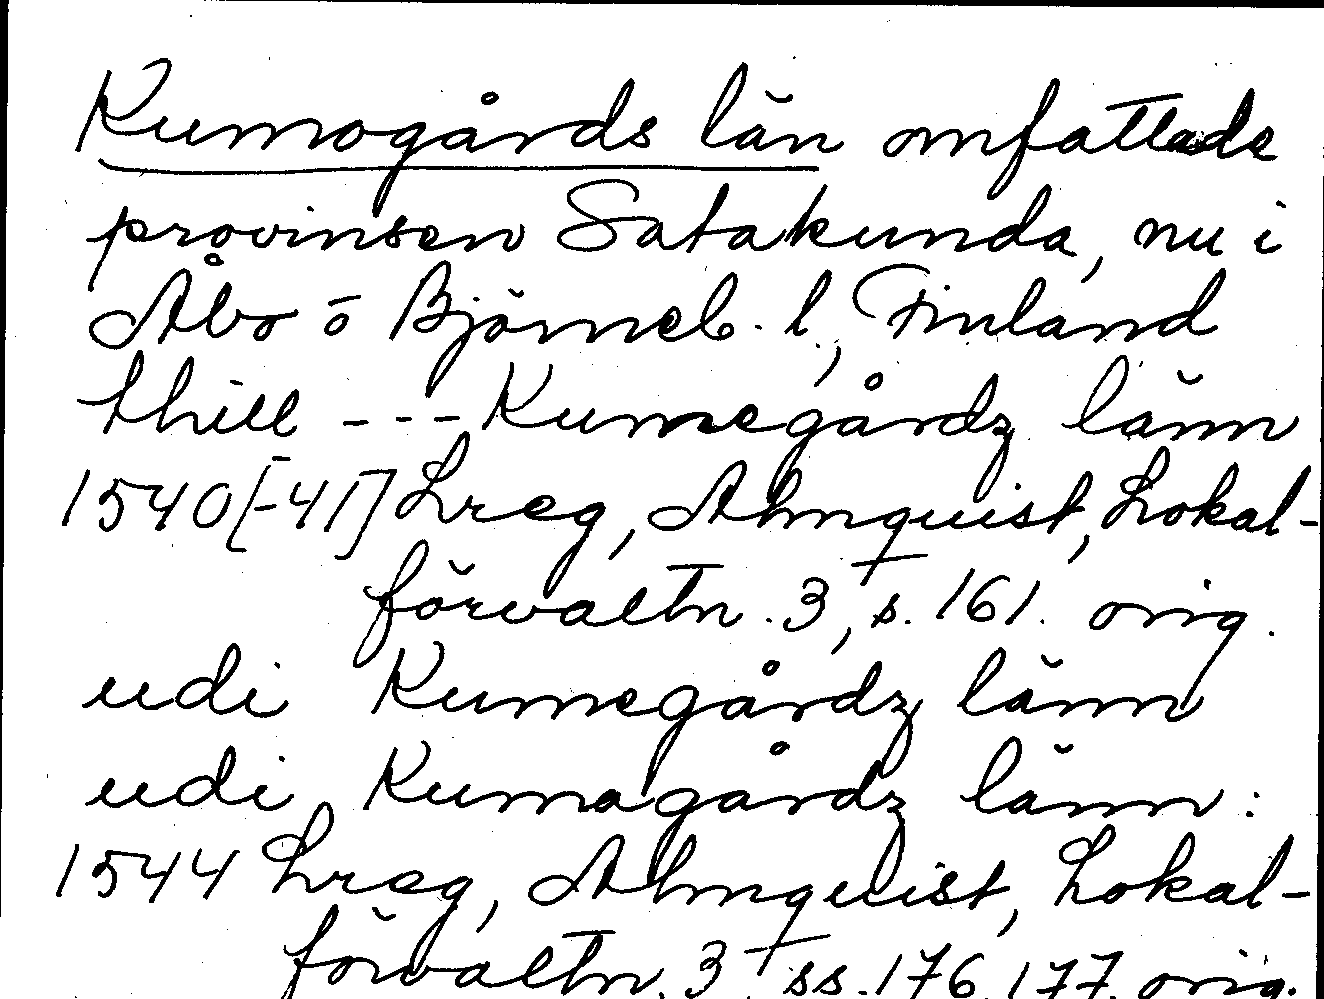 Kumogårds län omfattade
provinsen Satakunda, nu i
Åbo o Björneb. l, Finland
thill --- Kumegårdz länn
1540[-41] Lreg, Almquist, Lokal-
förvaltn. 3, s. 161. orig.
udi Kumegårdz länn
udi Kumagårdz länn:
1544 Lreg, Almquist, Lokal-
förvaltn. 3 ss. 176, 177. orig.